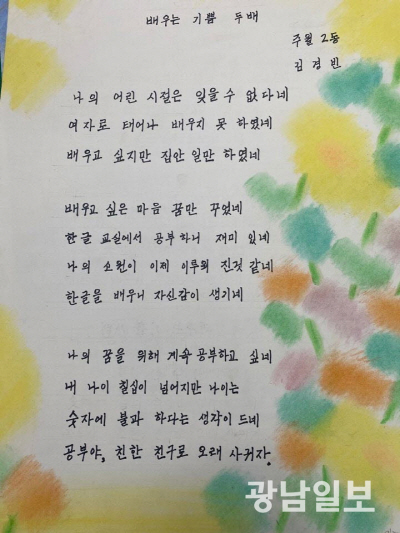 배우는 기쁨 두배
주월 2동
김경빈
나의 어린 시절은 잊을수 없다네
여자로 태어나 배우지 못 하였네
배우고 싶지만 집안 일만 하였네
배우고 싶은 마음 꿈만 꾸었네
한글 교실에서 공부하니 재미 있네
나의 소원이 이제 이루워 진것 같네
한글을 배우니 자신감이 생기네
나의 꿈을 위해 계속 공부하고 싶네
내 나이 칠십이 넘어지만 나이는
숫자에 불과 하다는 생각이 드네
공부야, 친한 친구로 오래 사귀자.
광남일보